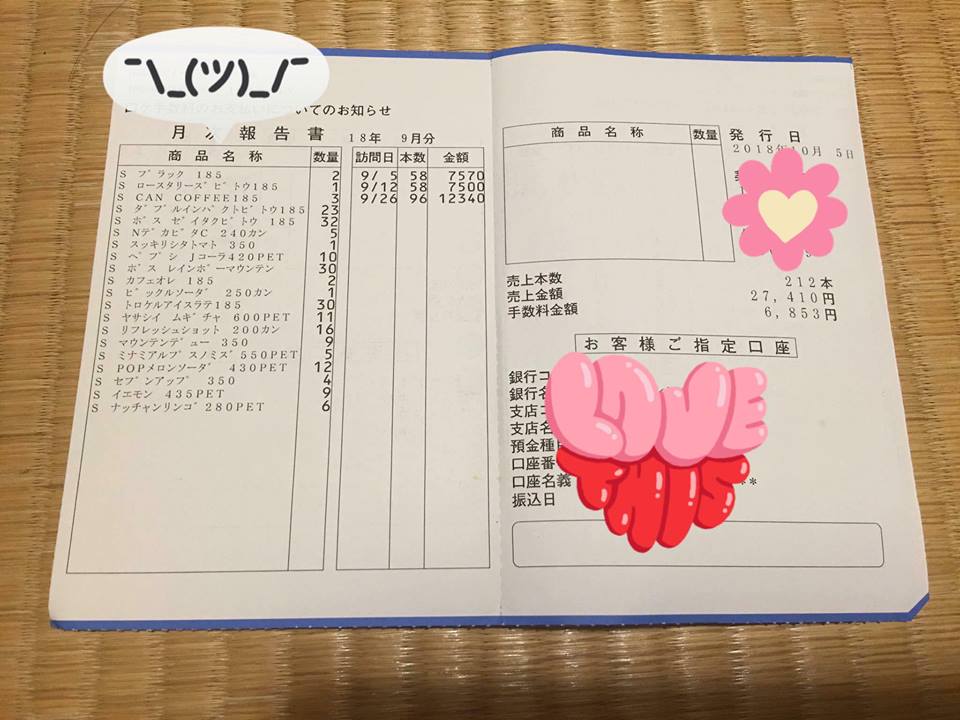 ¯\_(ツ)_/¯
ロケ手数料のお支払いについてのお知らせ
月次報告書 18年 9月分
商品名称 数量 訪問日 本数 金額
S ブラック 185 2 9/ 5 58 7570
S ロースタリーズビトウ185 1 9/12 58 7500
S CAN COFFEE185 3 9/26 96 12340
S ダブルインパクトビトウ185 23
S ボス ゼイタクビトウ 185 32
S NデカビタC 240カン 5
S スッキリシタトマト 350 1
S ペプシ Jコーラ420PET 10
S ボス レインボーマウンテン 30
S カフェオレ 185 2
S ビックルソーダ 250カン 1
S トロケルアイスラテ185 30
S ヤサシイ ムギチャ 600PET 11
S リフレッシュショット 200カン 16
S マウンテンデュー 350 9
S ミナミアルプスノミズ550PET 5
S POPメロンソーダ 430PET 12
S セブンアップ 350 4
S イエモン 435PET 9
S ナッチャンリンゴ 280PET 6
商品名称 数量 発行日
2018年10月 5日
売上本数 212本
売上金額 27,410円
手数料金額 6,853円
お客様ご指定口座
銀行コ
銀行名
支店コ
支店名
預金種
口座番
口座名義 **
振込日
LOVE
THIS